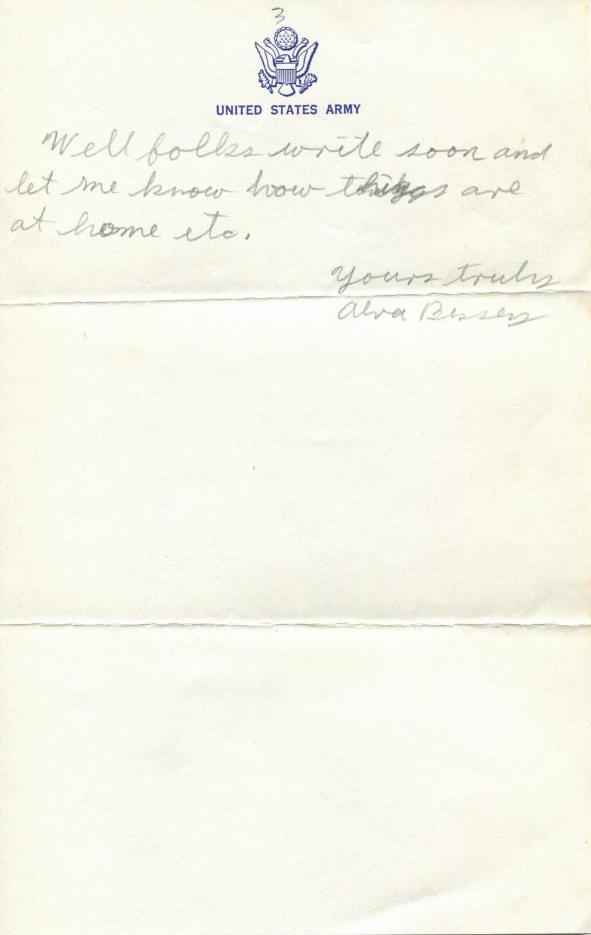 3
UNITED STATES ARMY
Well folks write soon and
let me know how things are
at home etc.
Yours truly
Alva Bessey